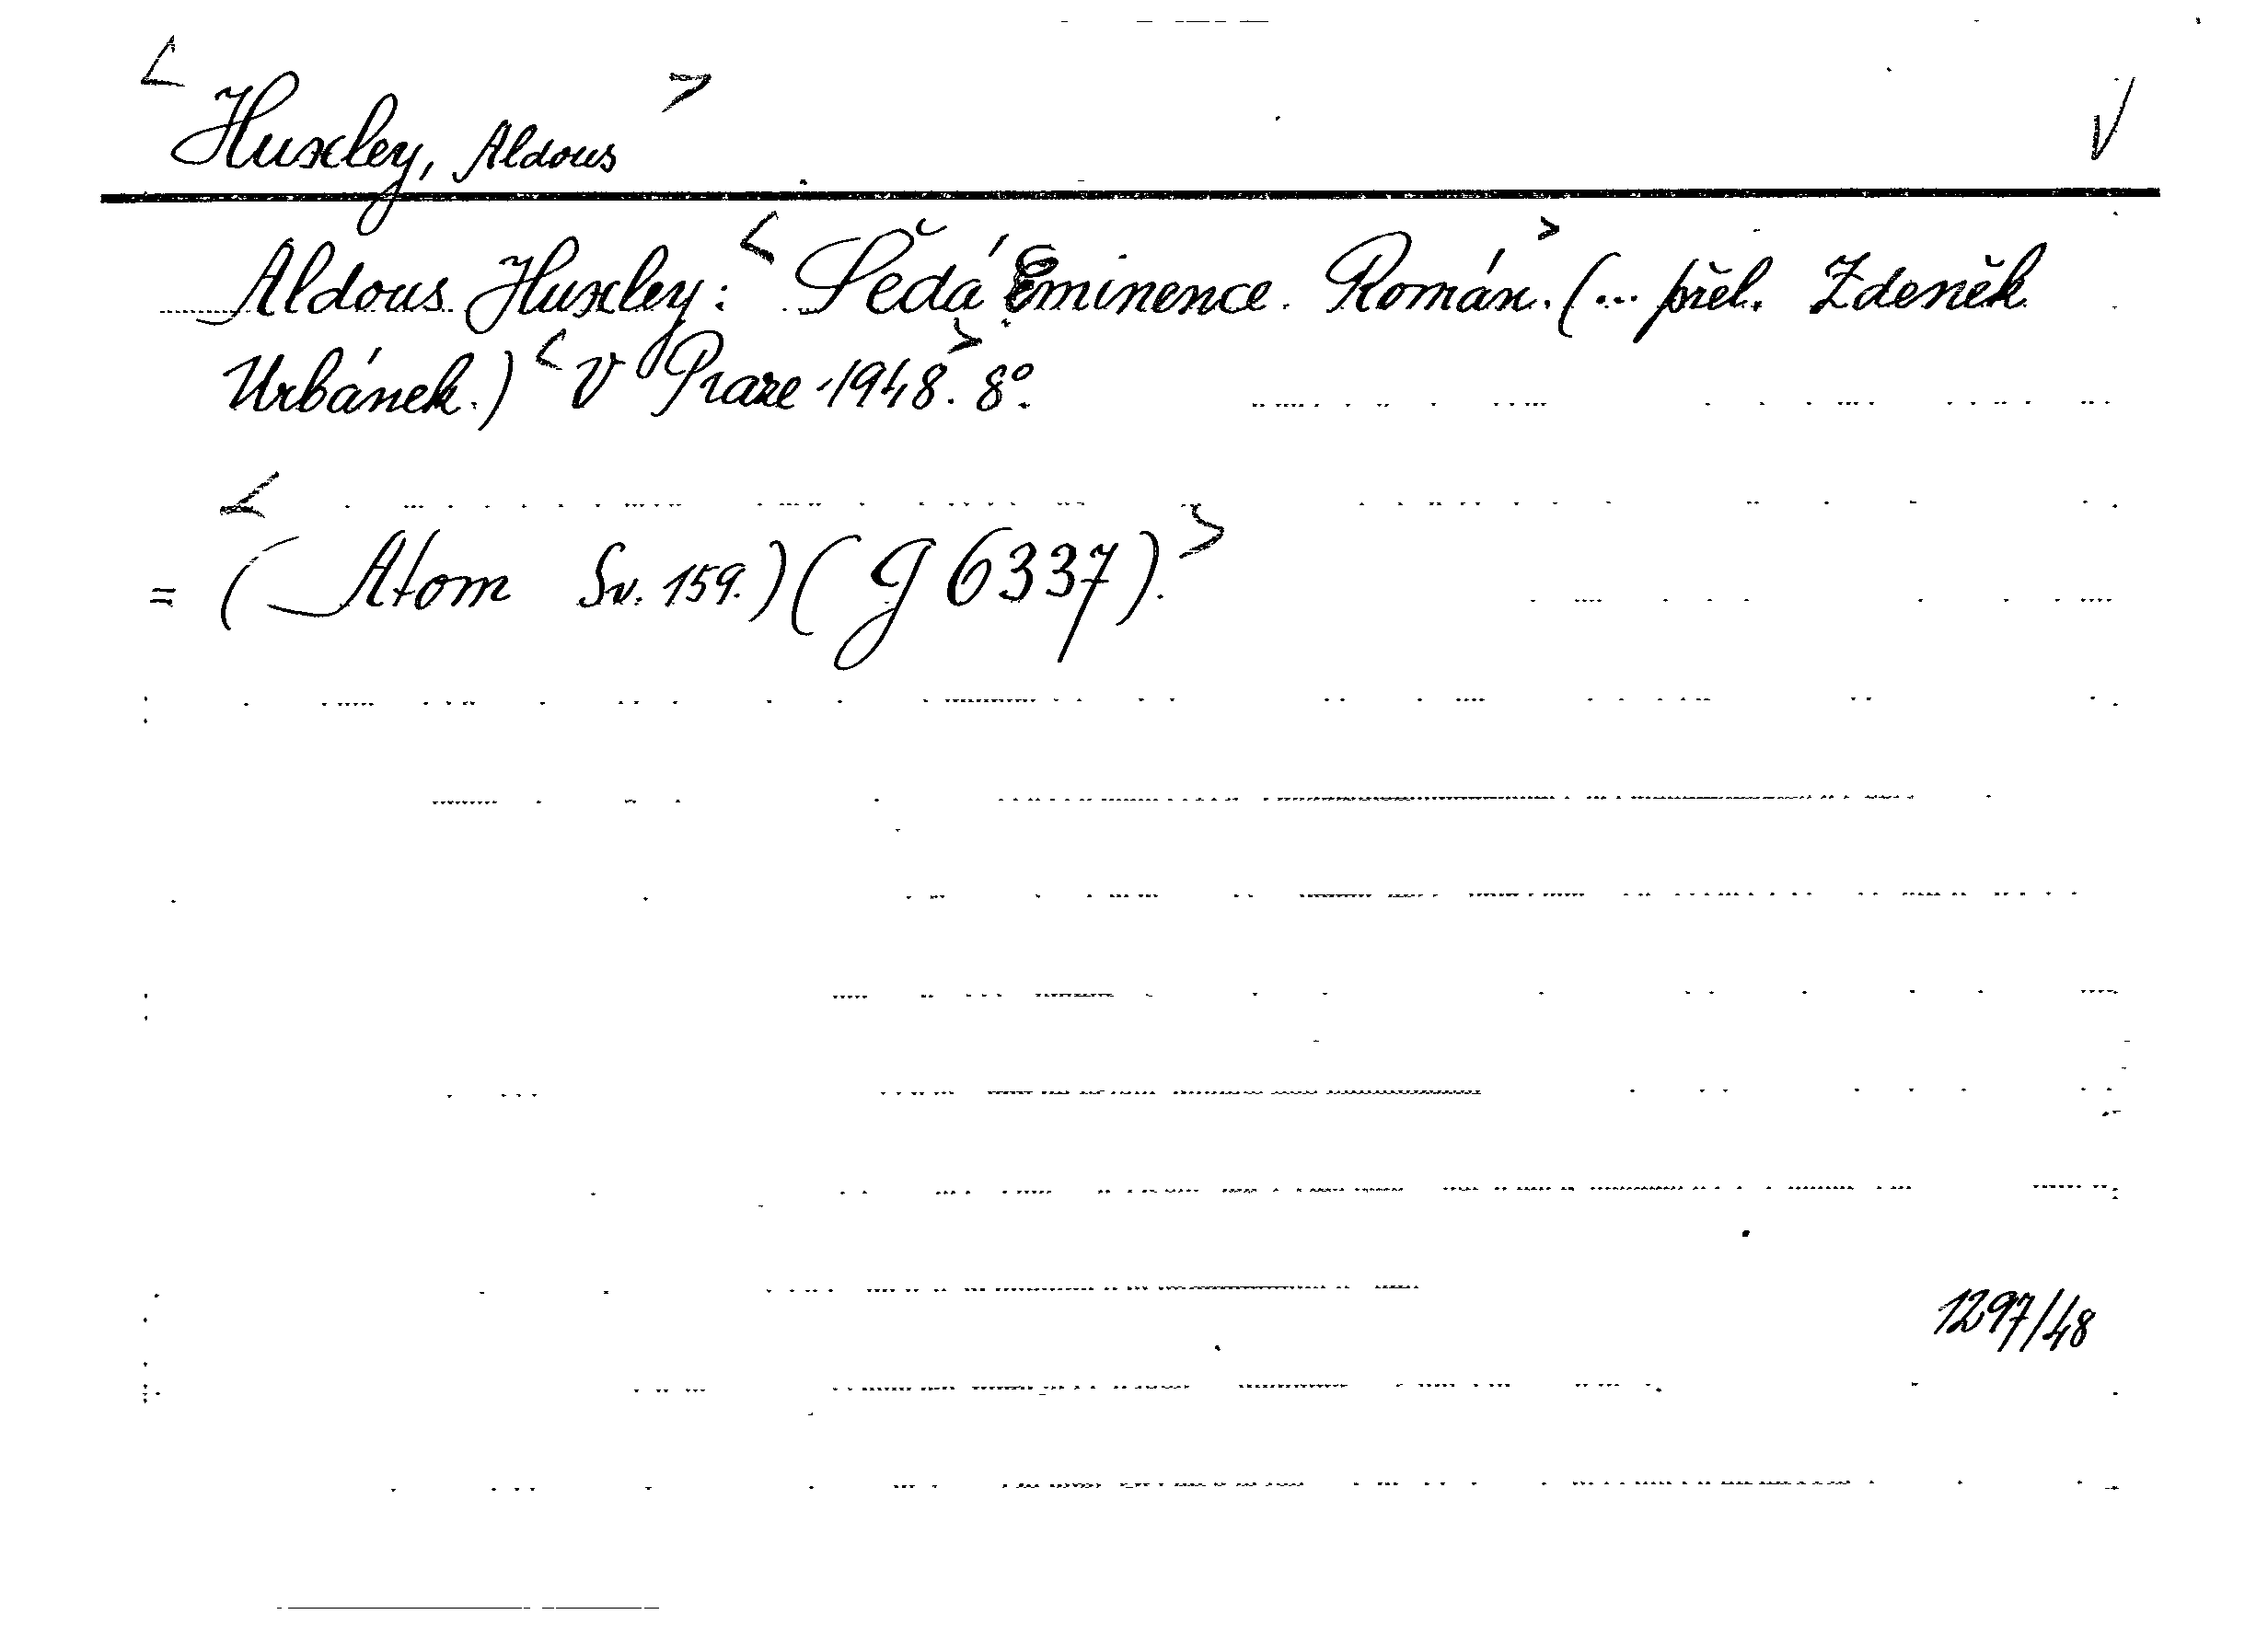 <Huxley, Aldous> V
Aldous Huxley: <Šedá Eminence. Román.> (... přel. Zdeněk
Urbánek.) <V Praze 1948.> 8°.
<= (Atom Sv. 159.) (G 6337).>
1297/48